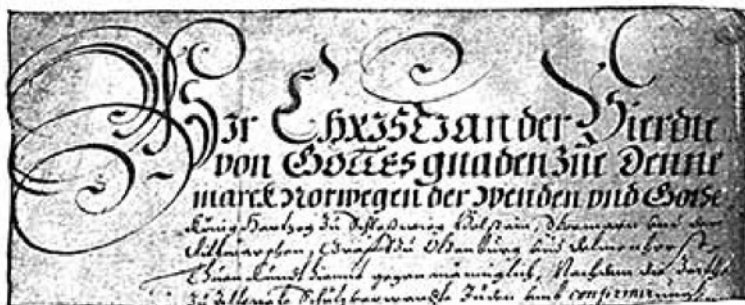 Wir Christian der Vierdte
von GOTTES gnaden zue Denne
marck Norwegen der Wenden vnd Gotte
König Hertzog zu Schleßwieg Holstain, Stormarn vnd der
Ditmarschen, Graff zu Oldenburg vnd Delmenhorst,
Thuen kundt hiemit gegen männiglich, Nachdem die
zu Altenaw Schutzverwandte Juden vmb confirmirung